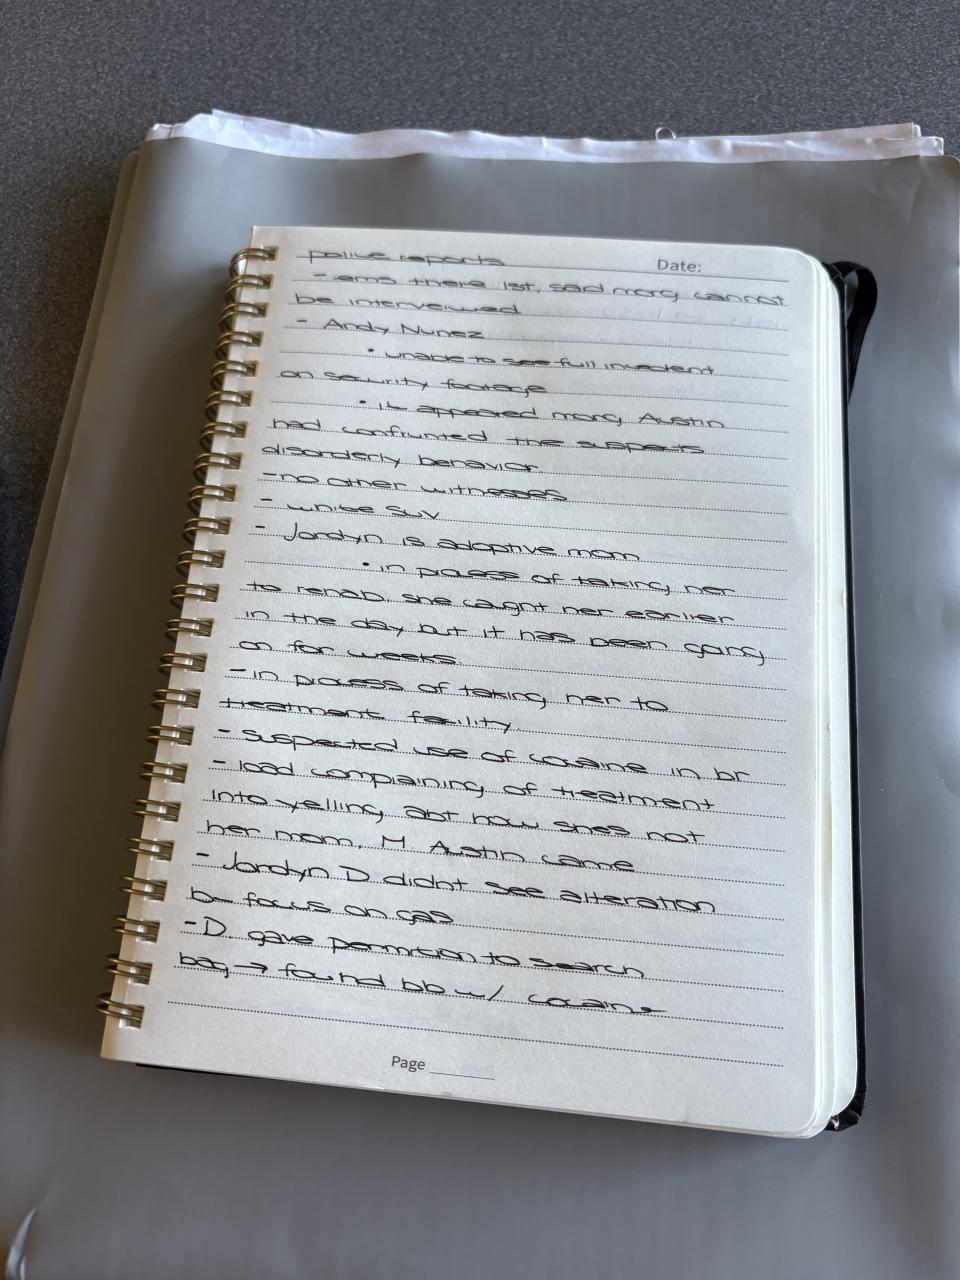 police reports
Date:
- ems there 1st, said morg cannot
be interveiwed
- Andy Nunez
• unable to see full incedent
on security footage
• it appeared morg Austin
had confrunted the suspects
disorderly behavior
- no other witnesses
- white suv
- Jordyn is adoptive mom
• in process of taking her
to rehab. she caught her earlier
in the day but it has been going
on for weeks
- in process of taking her to
treatment facility
- suspected use of cocaine in br
- load complaining of treatment
into yelling abt how shes not
her mom. M. Austin came
- Jordyn D didnt see alteration
bc focus on gas
- D. gave permition to search
bag → found bb w/ cocaine
Page